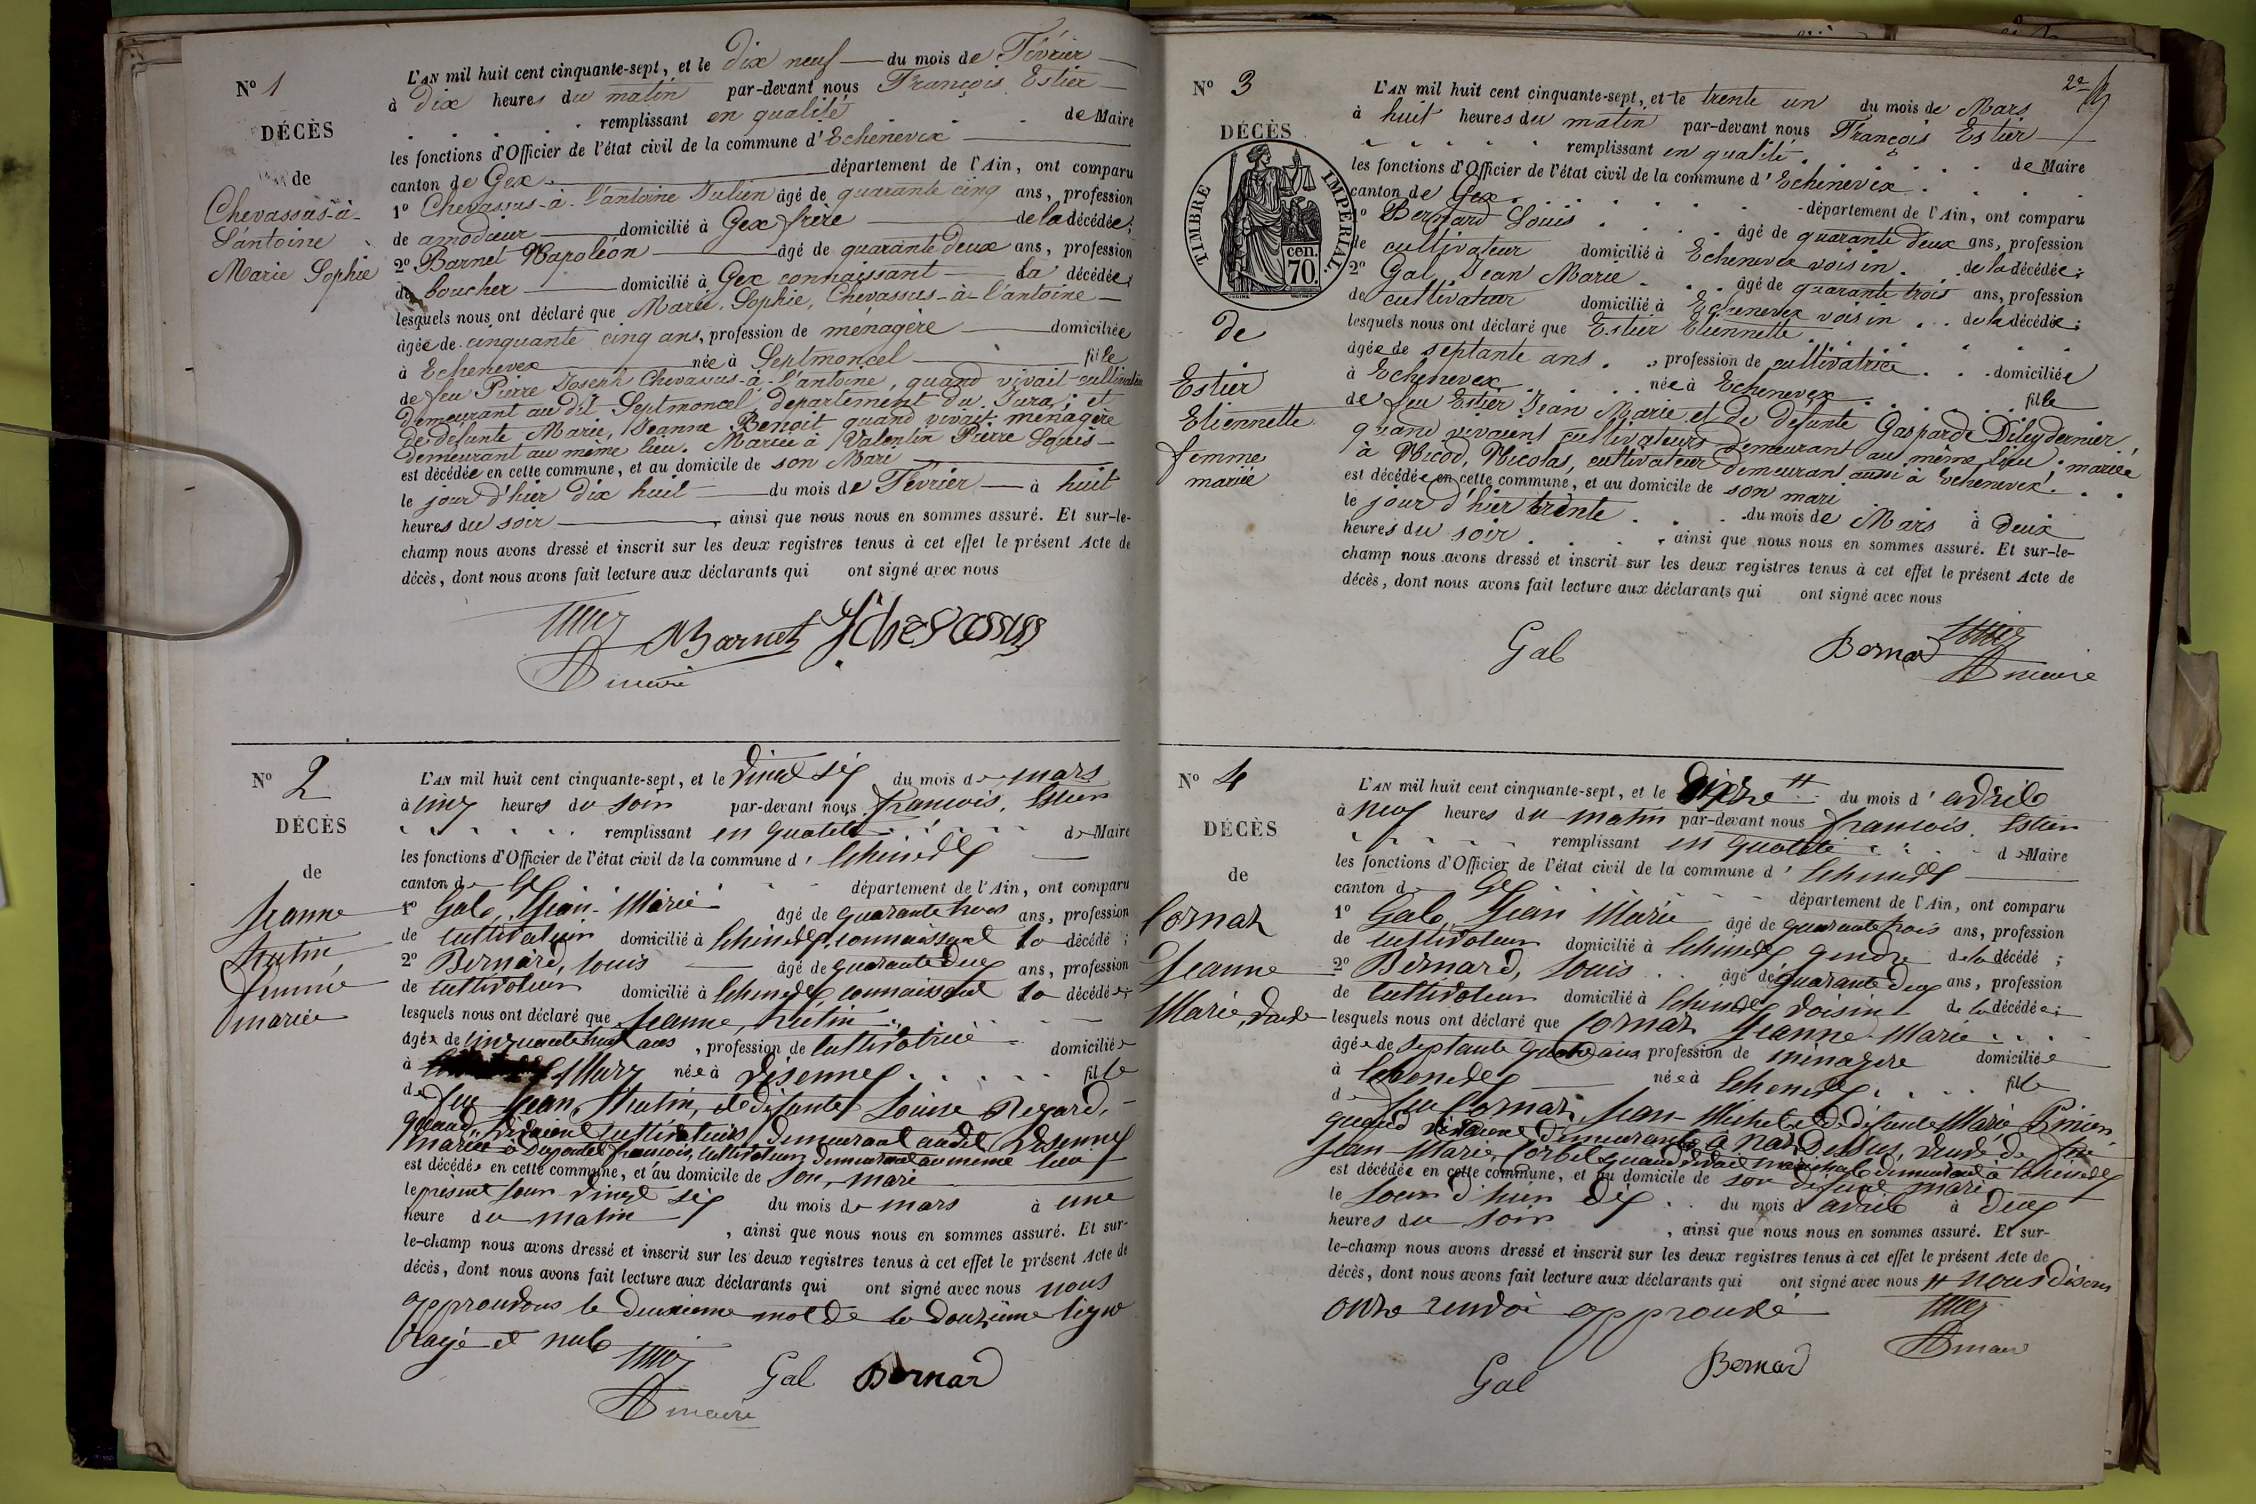 N° 1
DÉCÈS
de
Chevassus-à-
L'antoine
Marie Sophie
L'AN mil huit cent cinquante-sept, et le Dix neuf du mois de Février
à Dix heures du matin par-devant nous François Estier
remplissant en qualité de Maire
les fonctions d'Officier de l'état civil de la commune d'Echenevex
canton de Gex département de l'Ain, ont comparu
1° Chevassus-à-l'antoine Julien âgé de quarante cinq ans, profession
de amodieur domicilié à Gex frère de la décédée;
2° Barnet Napoléon âgé de quarante deux ans, profession
de boucher domicilié à Gex connaissant la décédée;
lesquels nous ont déclaré que Marie, Sophie, Chevassus-à-l'antoine
âgée de cinquante cinq ans, profession de ménagère domiciliée
à Echenevex née à Septmoncel fille
de feu Pierre Joseph Chevassus-à-l'antoine, quand vivait cultivateur
demeurant au dit Septmoncel département du Jura; et
de défunte Marie, Jeanne Benoit quand vivait ménagère
demeurant au même lieu. Mariée à Valentin Pierre Louis
est décédée en cette commune, et au domicile de son Mari
le jour d'hier dix huit du mois de Février à huit
heures du soir, ainsi que nous nous en sommes assuré. Et sur-le-
champ nous avons dressé et inscrit sur les deux registres tenus à cet effet le présent Acte de
décès, dont nous avons fait lecture aux déclarants qui ont signé avec nous
Barnet JChevassus
maire
N° 2
DÉCÈS
de
Jeanne
Hutin
femme
mariée
L'AN mil huit cent cinquante-sept, et le vingt six du mois de mars
à cinq heures du soir par-devant nous françois, Estier
remplissant en qualité de Maire
les fonctions d'Officier de l'état civil de la commune d'Echenevex
canton de Gex département de l'Ain, ont comparu
1° Gal, Jean-Marie âgé de quarante trois ans, profession
de cultivateur domicilié à Echenevex connaissant la décédé;
2° Bernard, Louis âgé de quarante deux ans, profession
de cultivateur domicilié à Echenevex, connaissant la décédée;
lesquels nous ont déclaré que Jeanne, Hutin
âgée de cinquante huit ans, profession de cultivatrice domiciliée
à Mury née à Vesennex fille
de feu Jean, Hutin, et de défunte Louise Regard,
quand vivaient cultivateurs demeurant audit Vesennex
mariée à françois, cultivateur demeurant au même lieu
est décédée en cette commune, et au domicile de son mari
le présent jour vingt six du mois de mars à une
heure du matin, ainsi que nous nous en sommes assuré. Et sur-
le-champ nous avons dressé et inscrit sur les deux registres tenus à cet effet le présent Acte de
décès, dont nous avons fait lecture aux déclarants qui ont signé avec nous nous
approuvons le deuxième mot de la douzième ligne
Rayé et nul
Gal Bernard
maire
N° 3
DÉCÈS
TIMBRE IMPÉRIAL.
70 cen.
de
Estier
Etiennette
femme
mariée
2e
L'AN mil huit cent cinquante-sept, et le trente un du mois de Mars
à huit heures du matin par-devant nous François Estier
remplissant en qualité de Maire
les fonctions d'Officier de l'état civil de la commune d'Echenevex
canton de Gex département de l'Ain, ont comparu
1° Bernard Louis âgé de quarante deux ans, profession
de cultivateur domicilié à Echenevex voisin de la décédée;
2° Gal, Jean Marie âgé de quarante trois ans, profession
de cultivateur domicilié à Echenevex voisin de la décédée;
lesquels nous ont déclaré que Estier Etiennette
âgée de septante ans, profession de cultivatrice domiciliée
à Echenevex née à Echenevex fille
de feu Estier Jean Marie et de défunte Gasparde Diley dernier
quand vivaient cultivateurs demeurant au même lieu; mariée
à Nicod, Nicolas, cultivateur demeurant aussi à Echenevex.
est décédée en cette commune, et au domicile de son mari
le jour d'hier trente du mois de Mars à Deux
heures du soir, ainsi que nous nous en sommes assuré. Et sur-le-
champ nous avons dressé et inscrit sur les deux registres tenus à cet effet le présent Acte de
décès, dont nous avons fait lecture aux déclarants qui ont signé avec nous
Gal Bernard
maire
N° 4
DÉCÈS
de
Cornaz
Jeanne
Marie, veuve
L'AN mil huit cent cinquante-sept, et le du mois d'avril
à neuf heures du matin par-devant nous françois, Estier
remplissant en qualité de Maire
les fonctions d'Officier de l'état civil de la commune d'Echenevex
canton de Gex département de l'Ain, ont comparu
1° Gal, Jean Marie âgé de quarante trois ans, profession
de cultivateur domicilié à Echenevex gendre de la décédé;
2° Bernard, Louis âgé de quarante deux ans, profession
de cultivateur domicilié à Echenevex voisin de la décédée;
lesquels nous ont déclaré que Cornaz Jeanne Marie
âgée de septante quatre ans profession de ménagère domiciliée
à Echenevex née à Echenevex fille
de feu Cornaz, Jean-Michel et de défunte Marie
quand vivaient demeurants à Naz-Dessus, veuve de feu
Jean-Marie, quand vivait demeurant à Echenevex
est décédée en cette commune, et au domicile de son défunt mari
le jour d'hier dix du mois d'avril à deux
heures du soir, ainsi que nous nous en sommes assuré. Et sur-
le-champ nous avons dressé et inscrit sur les deux registres tenus à cet effet le présent Acte de
décès, dont nous avons fait lecture aux déclarants qui ont signé avec nous # nous disons
onze renvoi approuvé
Gal Bernard
maire